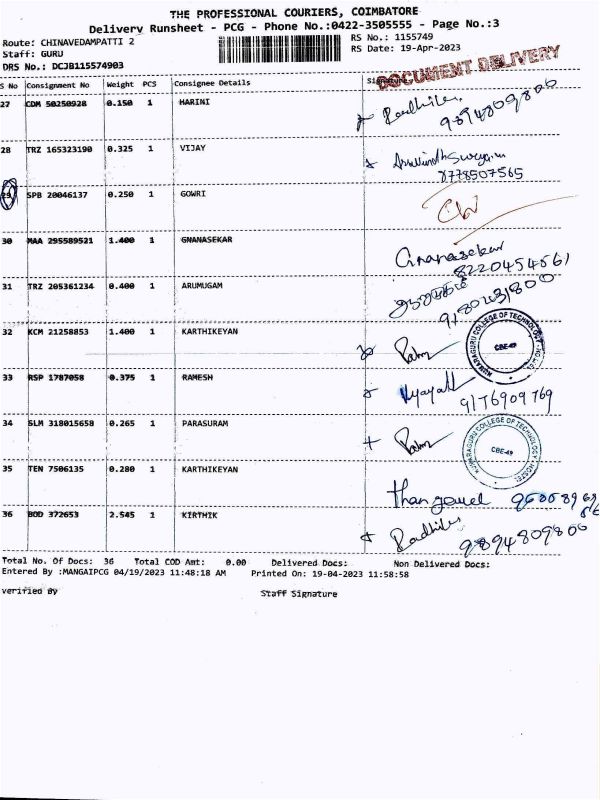 THE PROFESSIONAL COURIERS, COIMBATORE
Delivery Runsheet - PCG - Phone No.:0422-3505555 - Page No.:3
Route: CHINAVEDAMPATTI 2
RS No.: 1155749
Staff: GURU
RS Date: 19-Apr-2023
DRS No.: DCJB115574903
DOCUMENT DELIVERY
S No Consignment No Weight PCS Consignee Details Signature
27 CDM 50250928 0.150 1 HARINI
9894809800
28 TRZ 165323190 0.325 1 VIJAY
8778507565
29 SPB 20046137 0.250 1 GOWRI
30 MAA 295589521 1.400 1 GNANASEKAR Gnanasekar
8220454561
31 TRZ 205361234 0.400 1 ARUMUGAM
32 KCM 21258853 1.400 1 KARTHIKEYAN
KUMARAGURU COLLEGE OF TECHNOLOGY
CBE-49
33 RSP 1787058 0.375 1 RAMESH
9176909769
34 SLM 318015658 0.265 1 PARASURAM
KUMARAGURU COLLEGE OF TECHNOLOGY HOSTEL
CBE-49
35 TEN 7506135 0.280 1 KARTHIKEYAN
36 BOD 372653 2.545 1 KIRTHIK
9894809800
Total No. Of Docs: 36 Total COD Amt: 0.00 Delivered Docs: Non Delivered Docs:
Entered By :MANGAIPCG 04/19/2023 11:48:18 AM Printed On: 19-04-2023 11:58:58
verified By Staff Signature